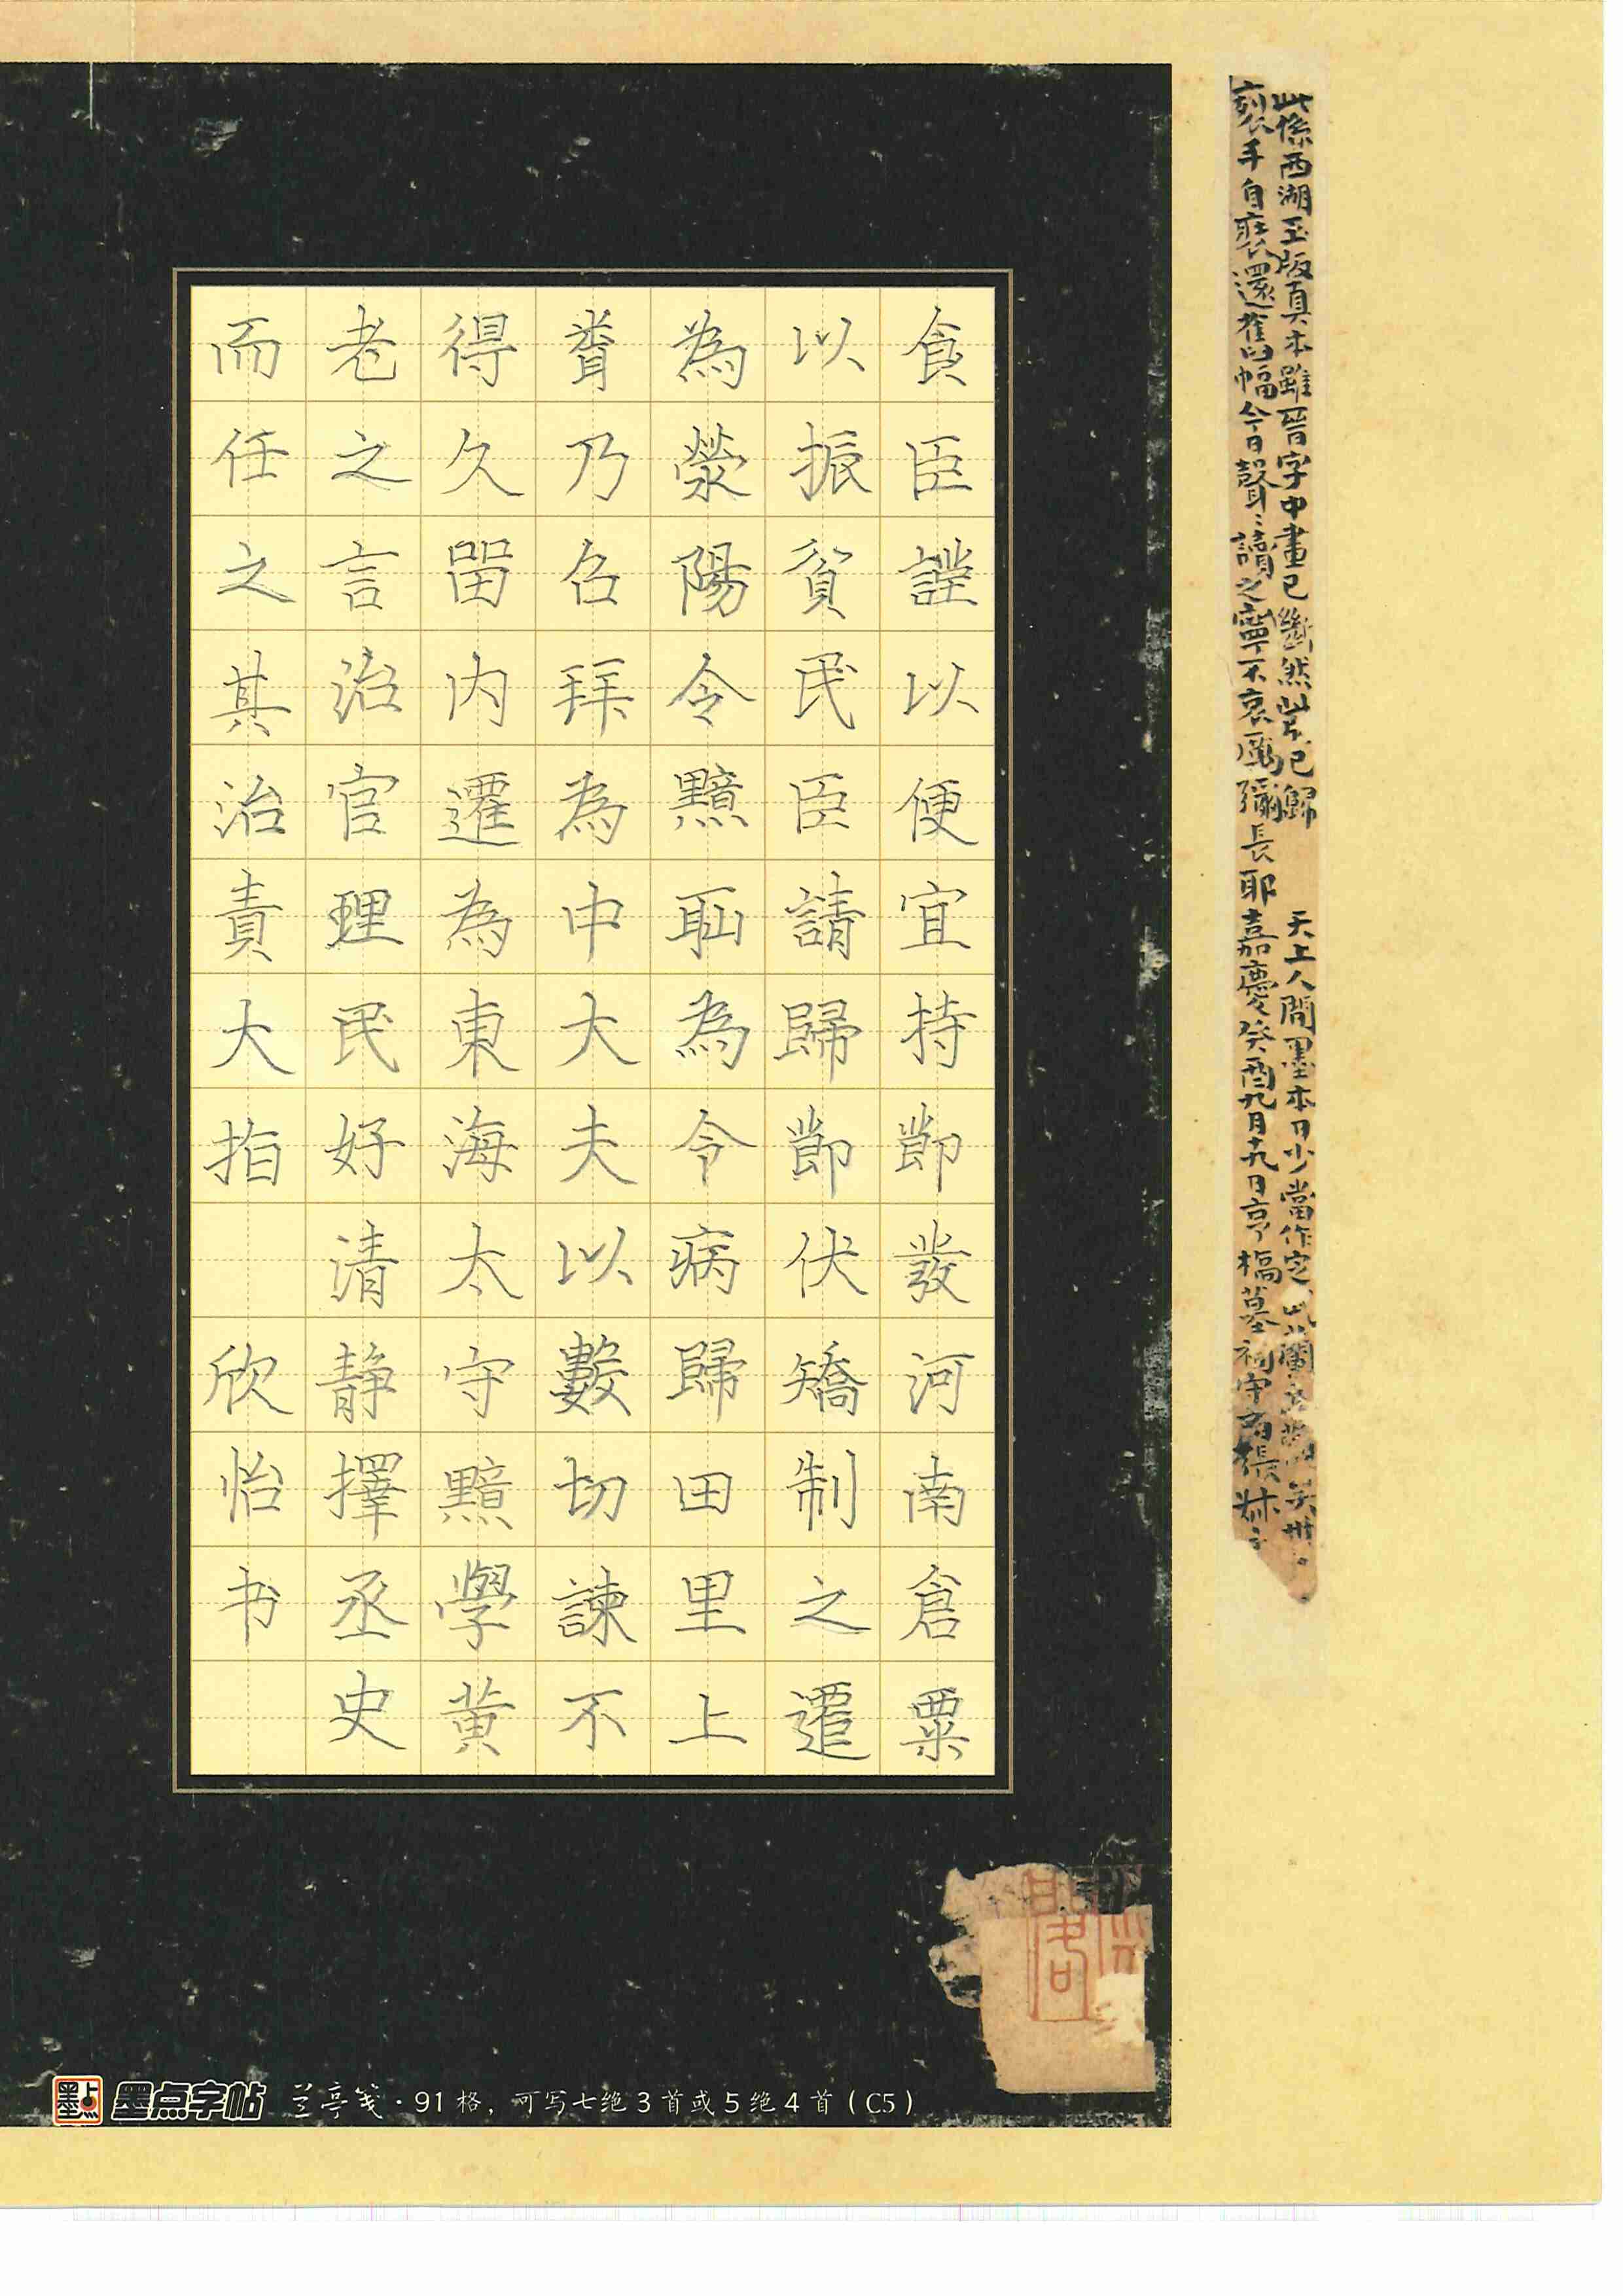 此係西湖玉版真本雖晉字中畫已斷然此片已歸 天上人間墨本日少當作定
裂手自裝還舊幅今日聲〻讀之寧不哀厲彌長耶嘉慶癸酉九月十九日
食臣謹以便宜持節發河南倉粟
以振貧民臣請歸節伏矯制之遷
為滎陽令黯耻為令病歸田里上
聞乃召拜為中大夫以數切諫不
得久留内遷為東海太守黯學黄
老之言治官理民好清静擇丞史
而任之其治責大指 欣怡书
墨点字帖 兰亭笺·91格，可写七绝3首或5绝4首（C5）